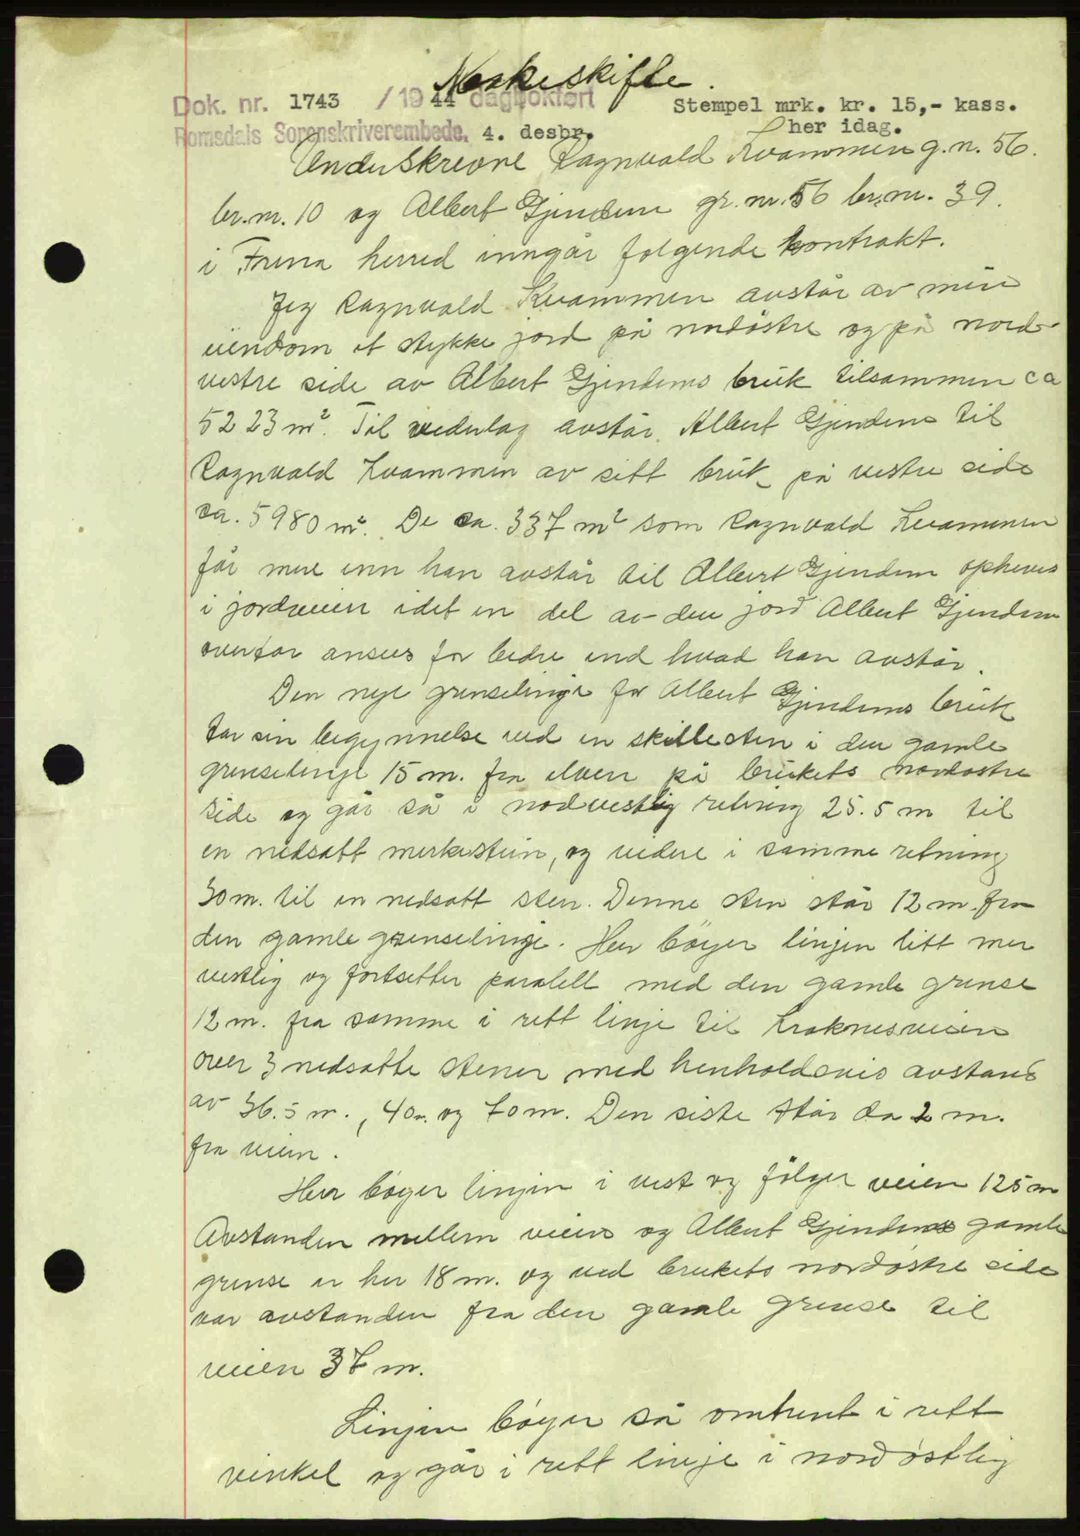 Makeskifte.
Dok. nr. 1743 / 1944 dagbokført
Stempel mrk. kr. 15,- kass.
Romsdals Sorenskriverembede, 4. desbr.
her idag.
Underskrevne Ragnvald Kvammen g.n. 56.
br.nr. 10 og Albert Gjendem gr. nr. 56 br.nr. 39.
i Fræna herred inngår følgende kontrakt.
Jeg Ragnvald Kvammen avstår av min
eiendom et stykke jord på nordöstre og på nord-
vestre side av Albert Gjendems bruk tilsammen ca
5223 m². Til vederlag avstår Albert Gjendem til
Ragnvald Kvammen av sitt bruk på vestre side
ca. 5980 m². De ca. 337 m² som Ragnvald Kvammen
får mere enn han avstår til Albert Gjendem opheves
i jordveien idet en del av den jord Albert Gjendem
overtar ansees for bedre end hvad han avstår.
Den nye grenselinje for Albert Gjendems bruk
tar sin begynnelse ved en skillesten i den gamle
grenselinje 15 m. fra elven på brukets nordøstre
side og går så i nordvestlig retning 25.5 m til
en nedsatt merkestein, og videre i samme retning
30 m. til en nedsatt sten. Denne sten står 12 m. fra
den gamle grenselinje. Her böyer linjen litt mer
vestlig og fortsetter paralell med den gamle grense
12 m. fra samme i rett linje til Kraknesveien
over 3 nedsatte stener med henholdsvis avstand
av 36.5 m., 40 m. og 70 m. Den siste står da 2 m.
fra veien.
Her böyer linjen i vest og fölger veien 125 m
Avstanden mellem veien og Albert Gjendems gamle
grense er her 18 m. og ved brukets nordøstre side
var avstanden fra den gamle grense til
veien 37 m.
Linjen böyer så omtrent i rett
vinkel og går i rett linje i nordøstlig